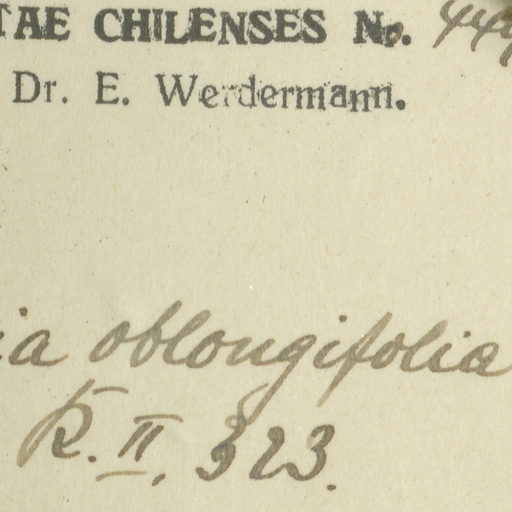 TAE CHILENSES No. 449
Dr. E. Werdermann.
ia oblongifolia
R. II, 323.